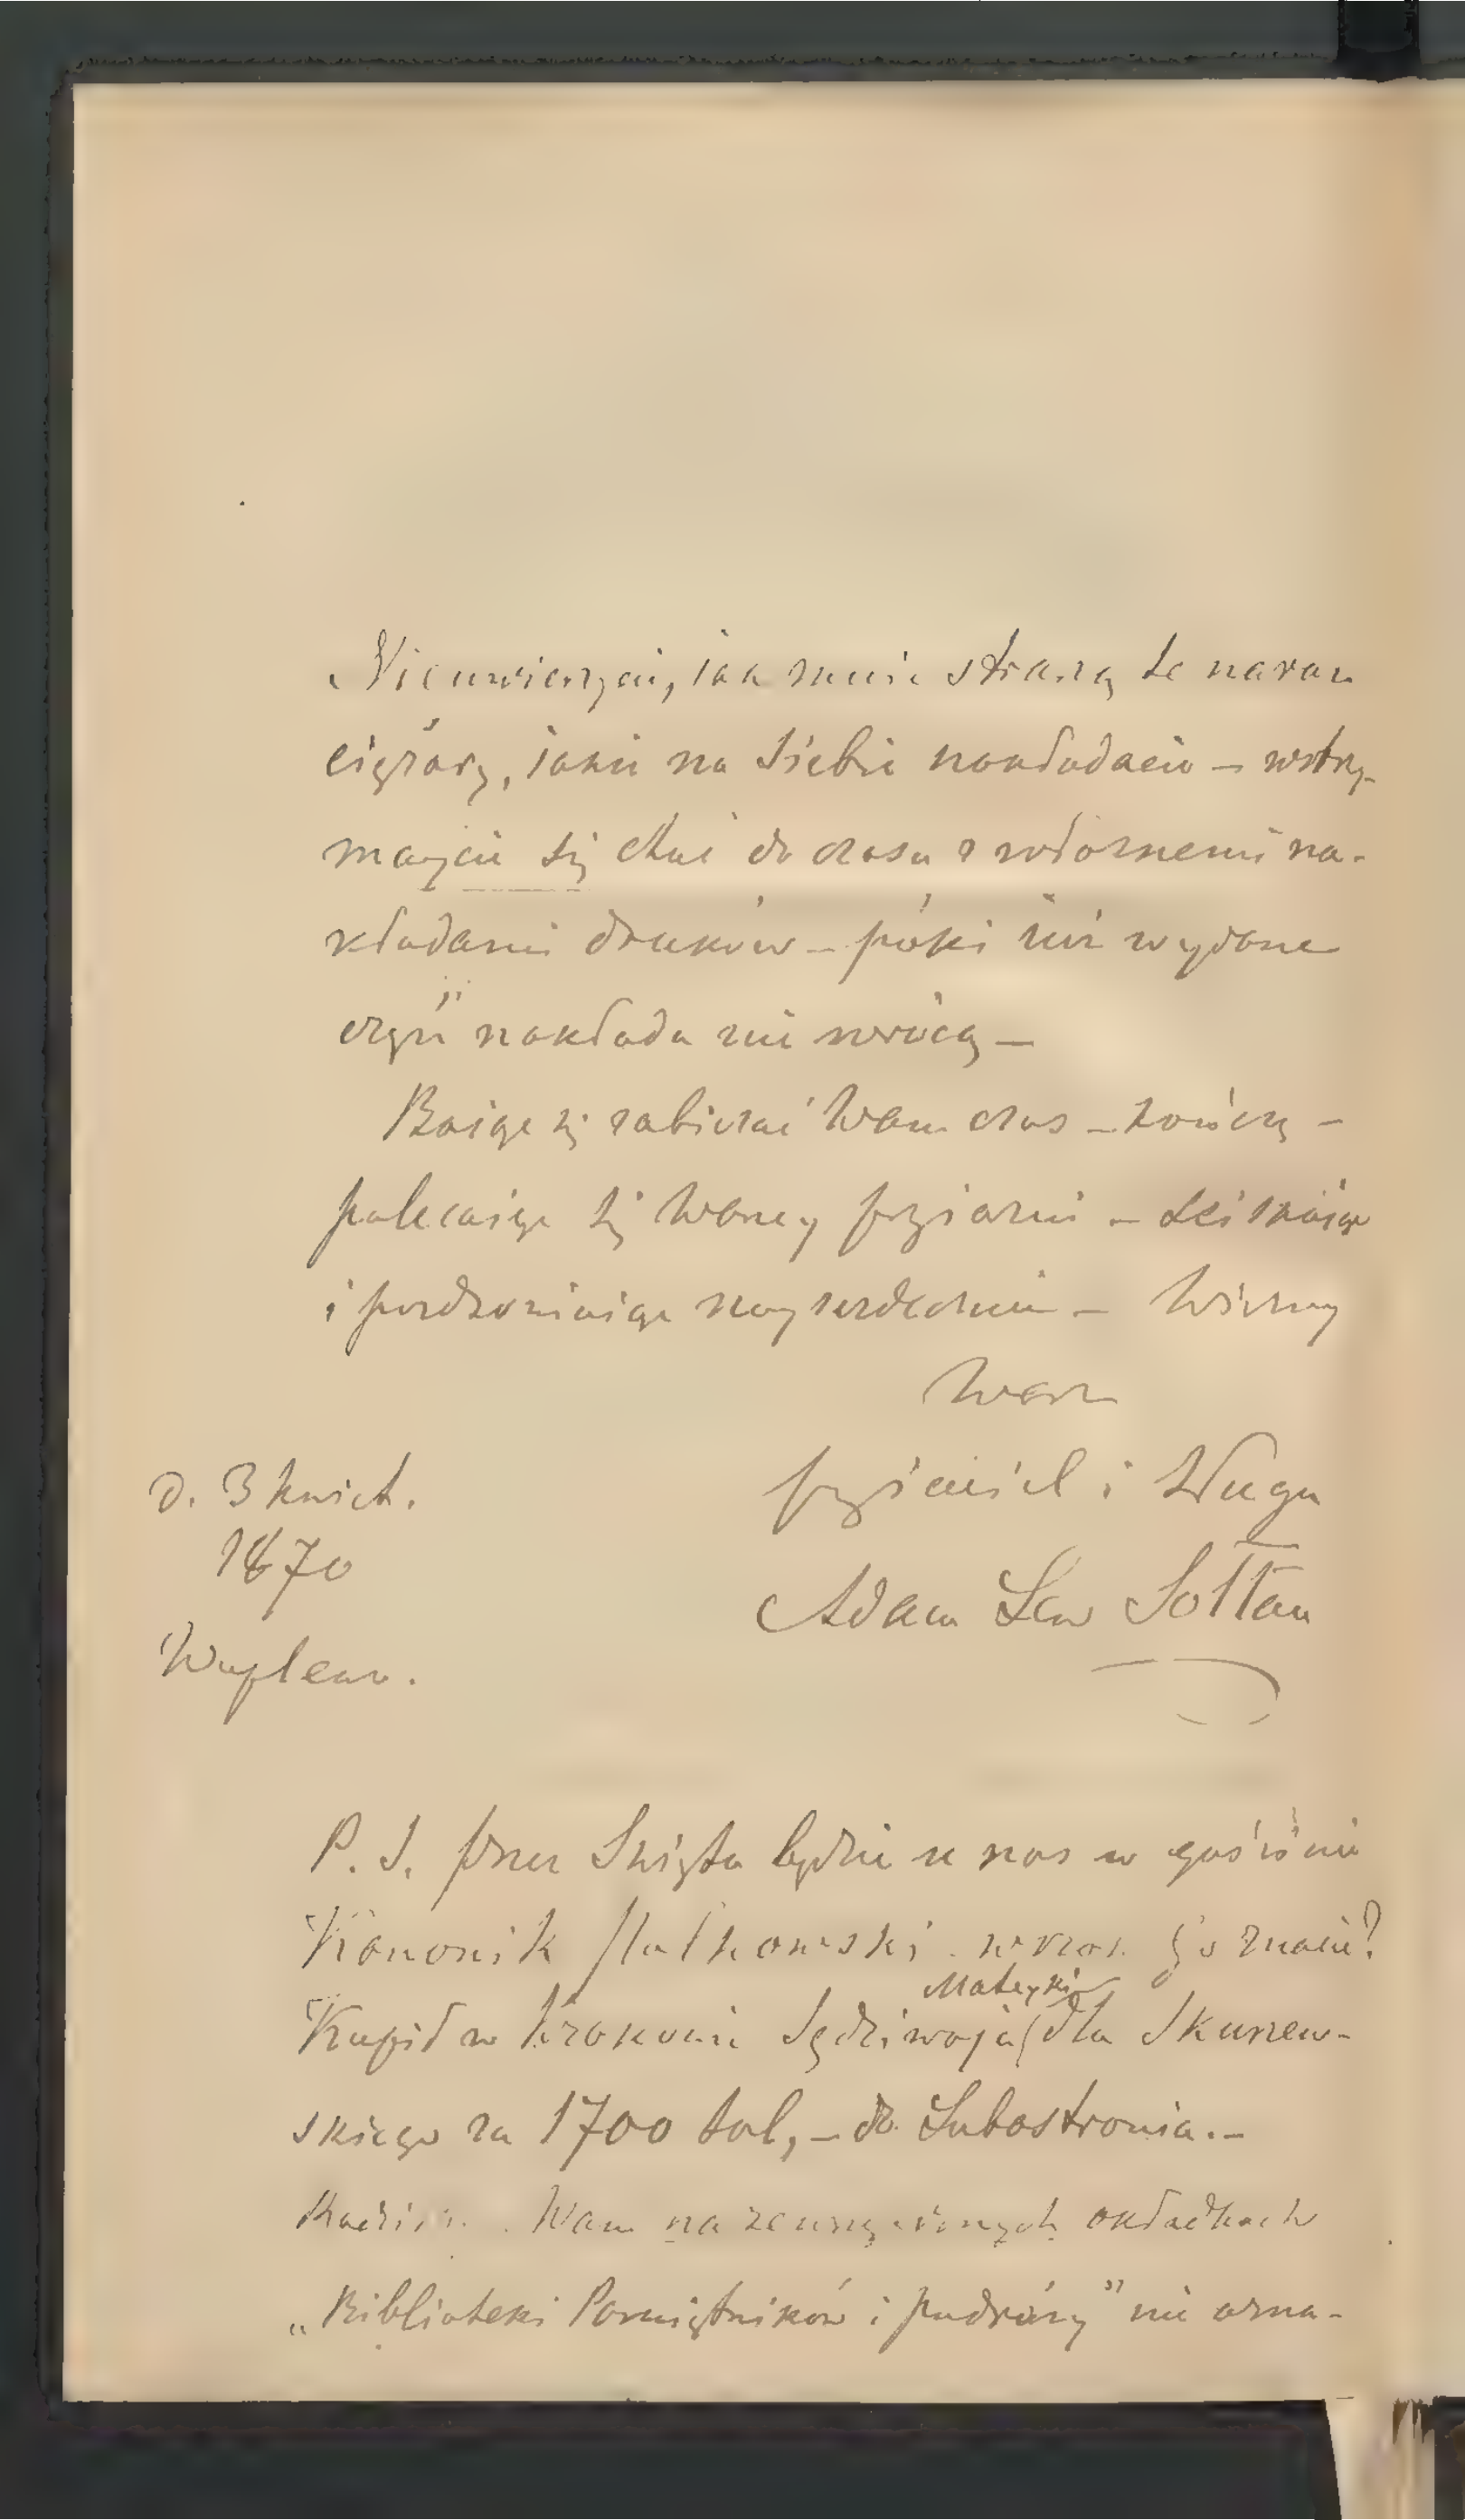 Nieuwierzycie, iak mnie straszą te naraz
ciężary, iakie na siebie nakładacie – wstrzy-
maycie się choć do czasu z własnemi na-
kładami druków – póki iuż wydane
czyii nakładu nie wrócą –
Boię się zabierać Wam czas – kończę –
polecaiąc się Waszey przyiaźni – ściskaiąc
i pozdrawiaiąc nayserdeczniej – Wierny
Wasz
przyiaciel i sługa
Adam Lew Sołtan
d. 3 kwiet.
1870
Wuplew.
P. S. przez Święta będzie u nas w gościnie
Kanonik wszak Go znacie?
Kupił w Krakowie Sędziwoja Mateyki dla Skurzew-
skiego za 1700 tal, – do Lubostronia. –
Radzi Wam na zewnętrznych okładkach
„Biblioteki Pamiętników i podróży" nie ozna-